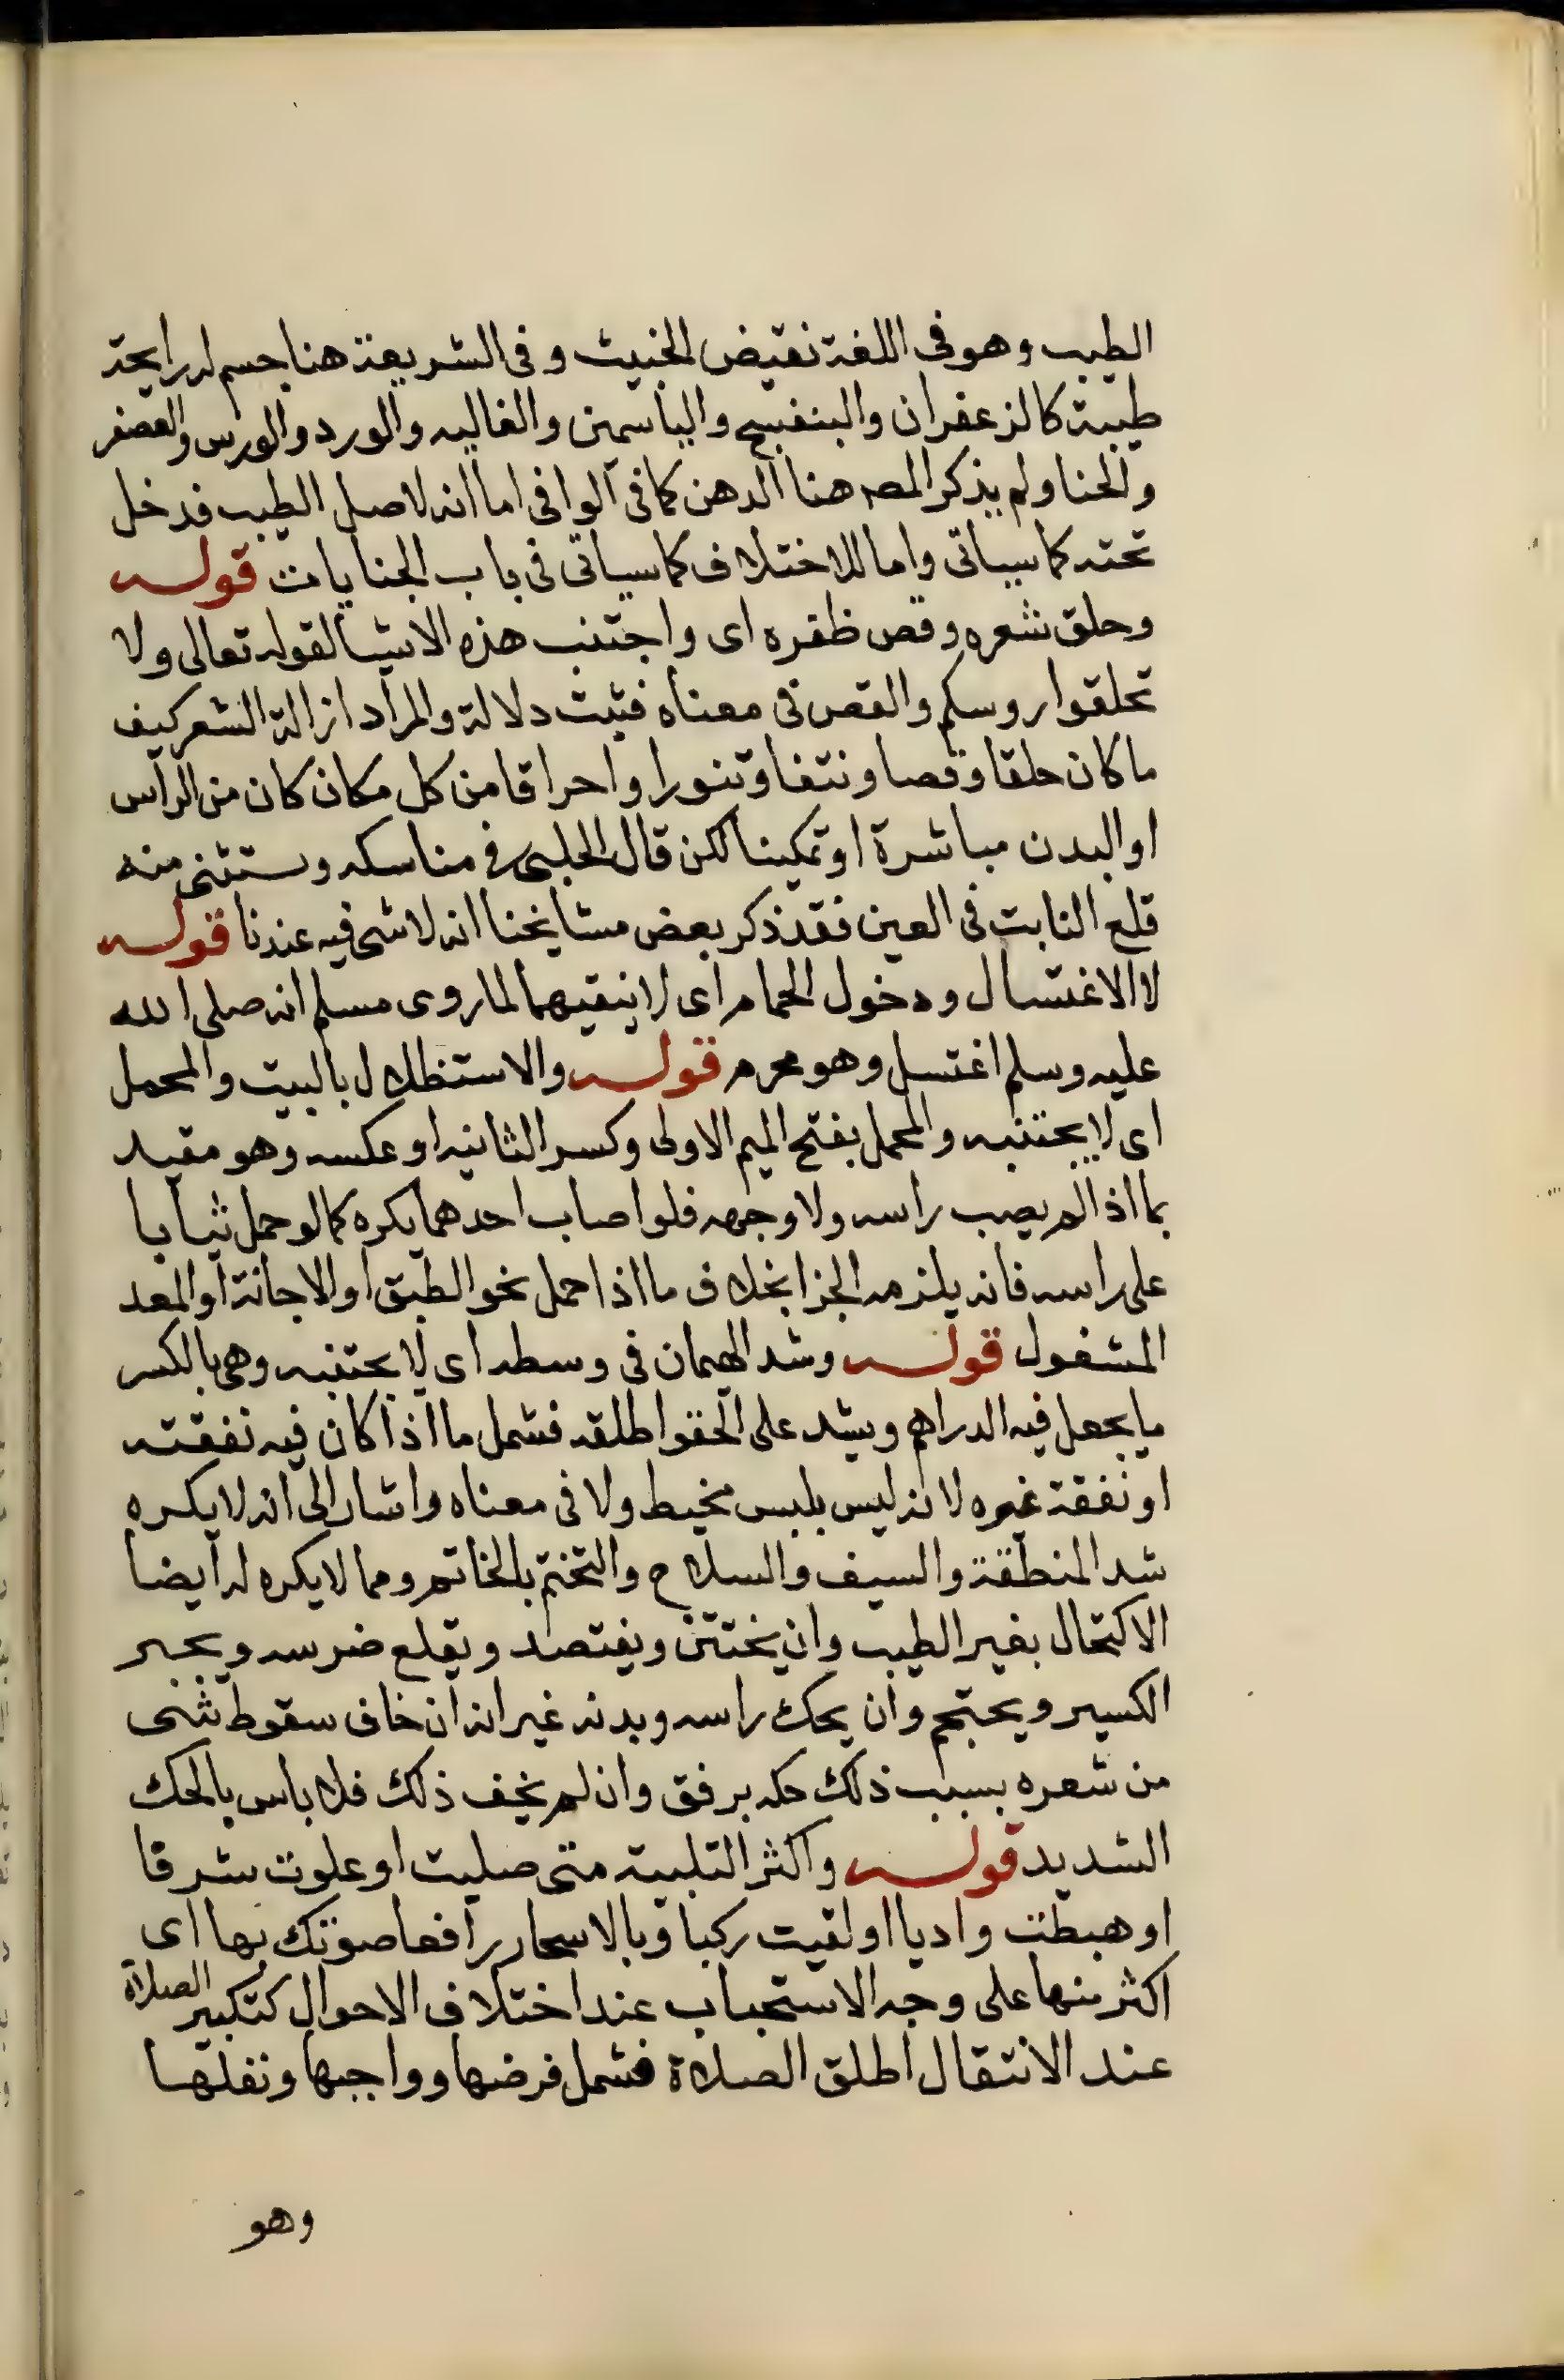 الطيب وهو فى اللغة نقيض الخبيث وفى الشريعة هنا جسم له رايحة
طيبة كالزعفران والبنفسج والياسمين والغاليه والورد والورس والعصفر
والحنا ولم يذكر المصـ هنا الدهن كما فى الوافى اما انه لاصل الطيب فدخل
تحته كما سياتى واما للاختلاف كما سياتى فى باب الجنايات قوله
وحلق شعره وقص ظفره اى واجتنب هذه الاشيا لقوله تعالى ولا
تحلقوا روسكم والقص فى معناه فثبت دلالة والمراد ازالة الشعر كيف
ما كان حلقا وقصا ونتفا وتنورا واحراقا من كل مكان كان من الراس
او البدن مباشرة او تمكينا لكن قال الحلبى فى مناسكه ويستثنى منه
قلع النابت فى العين فقد ذكر بعض مشايخنا انه لا شى فيه عندنا قوله
لا الاغتسال ودخول الحمام اى لا يتقيهما لما روى مسلم انه صلى الله
عليه وسلم اغتسل وهو محرم قوله والاستظلال بالبيت والمحمل
اى لا يجتنبه والمحمل بفتح الميم الاولى وكسر الثانيه او عكسه وهو مقيد
بما اذا لم يصب راسه ولا وجهه فلو اصاب احدهما يكره كما لو حمل ثيابا
على راسه فانه يلزمه الجزا بخلاف ما اذا حمل نحو الطبق او الاجانة او المعد
المشغول قوله وشد الهميان فى وسطه اى لا يجتنبه وهى بالكسر
ما يجعل فيه الدراهم ويشد على الحقو اطلقه فشمل ما اذا كان فيه نفقته
او نفقة غيره لانه ليس بلبس مخيط ولا فى معناه واشار الى انه لا يكره
شد المنطقة والسيف والسلاح والتختم بالخاتم ومما لا يكره له ايضا
الاكتحال بغير الطيب وان يختتن ويفتصد ويقلع ضرسه ويجبر
الكسير ويحتجم وان يحك راسه وبدنه غير انه ان خاف سقوط شى
من شعره بسبب ذلك حكه برفق وان لم يخف ذلك فلا باس بالحك
الشديد قوله واكثر التلبية متى صليت او علوت شرفا
او هبطت واديا او لقيت ركبا وبالاسحار رافعا صوتك بها اى
اكثر منها على وجه الاستحباب عند اختلاف الاحوال كتكبير الصلاة
عند الانتقال اطلق الصلاة فشمل فرضها وواجبها ونفلها
وهو